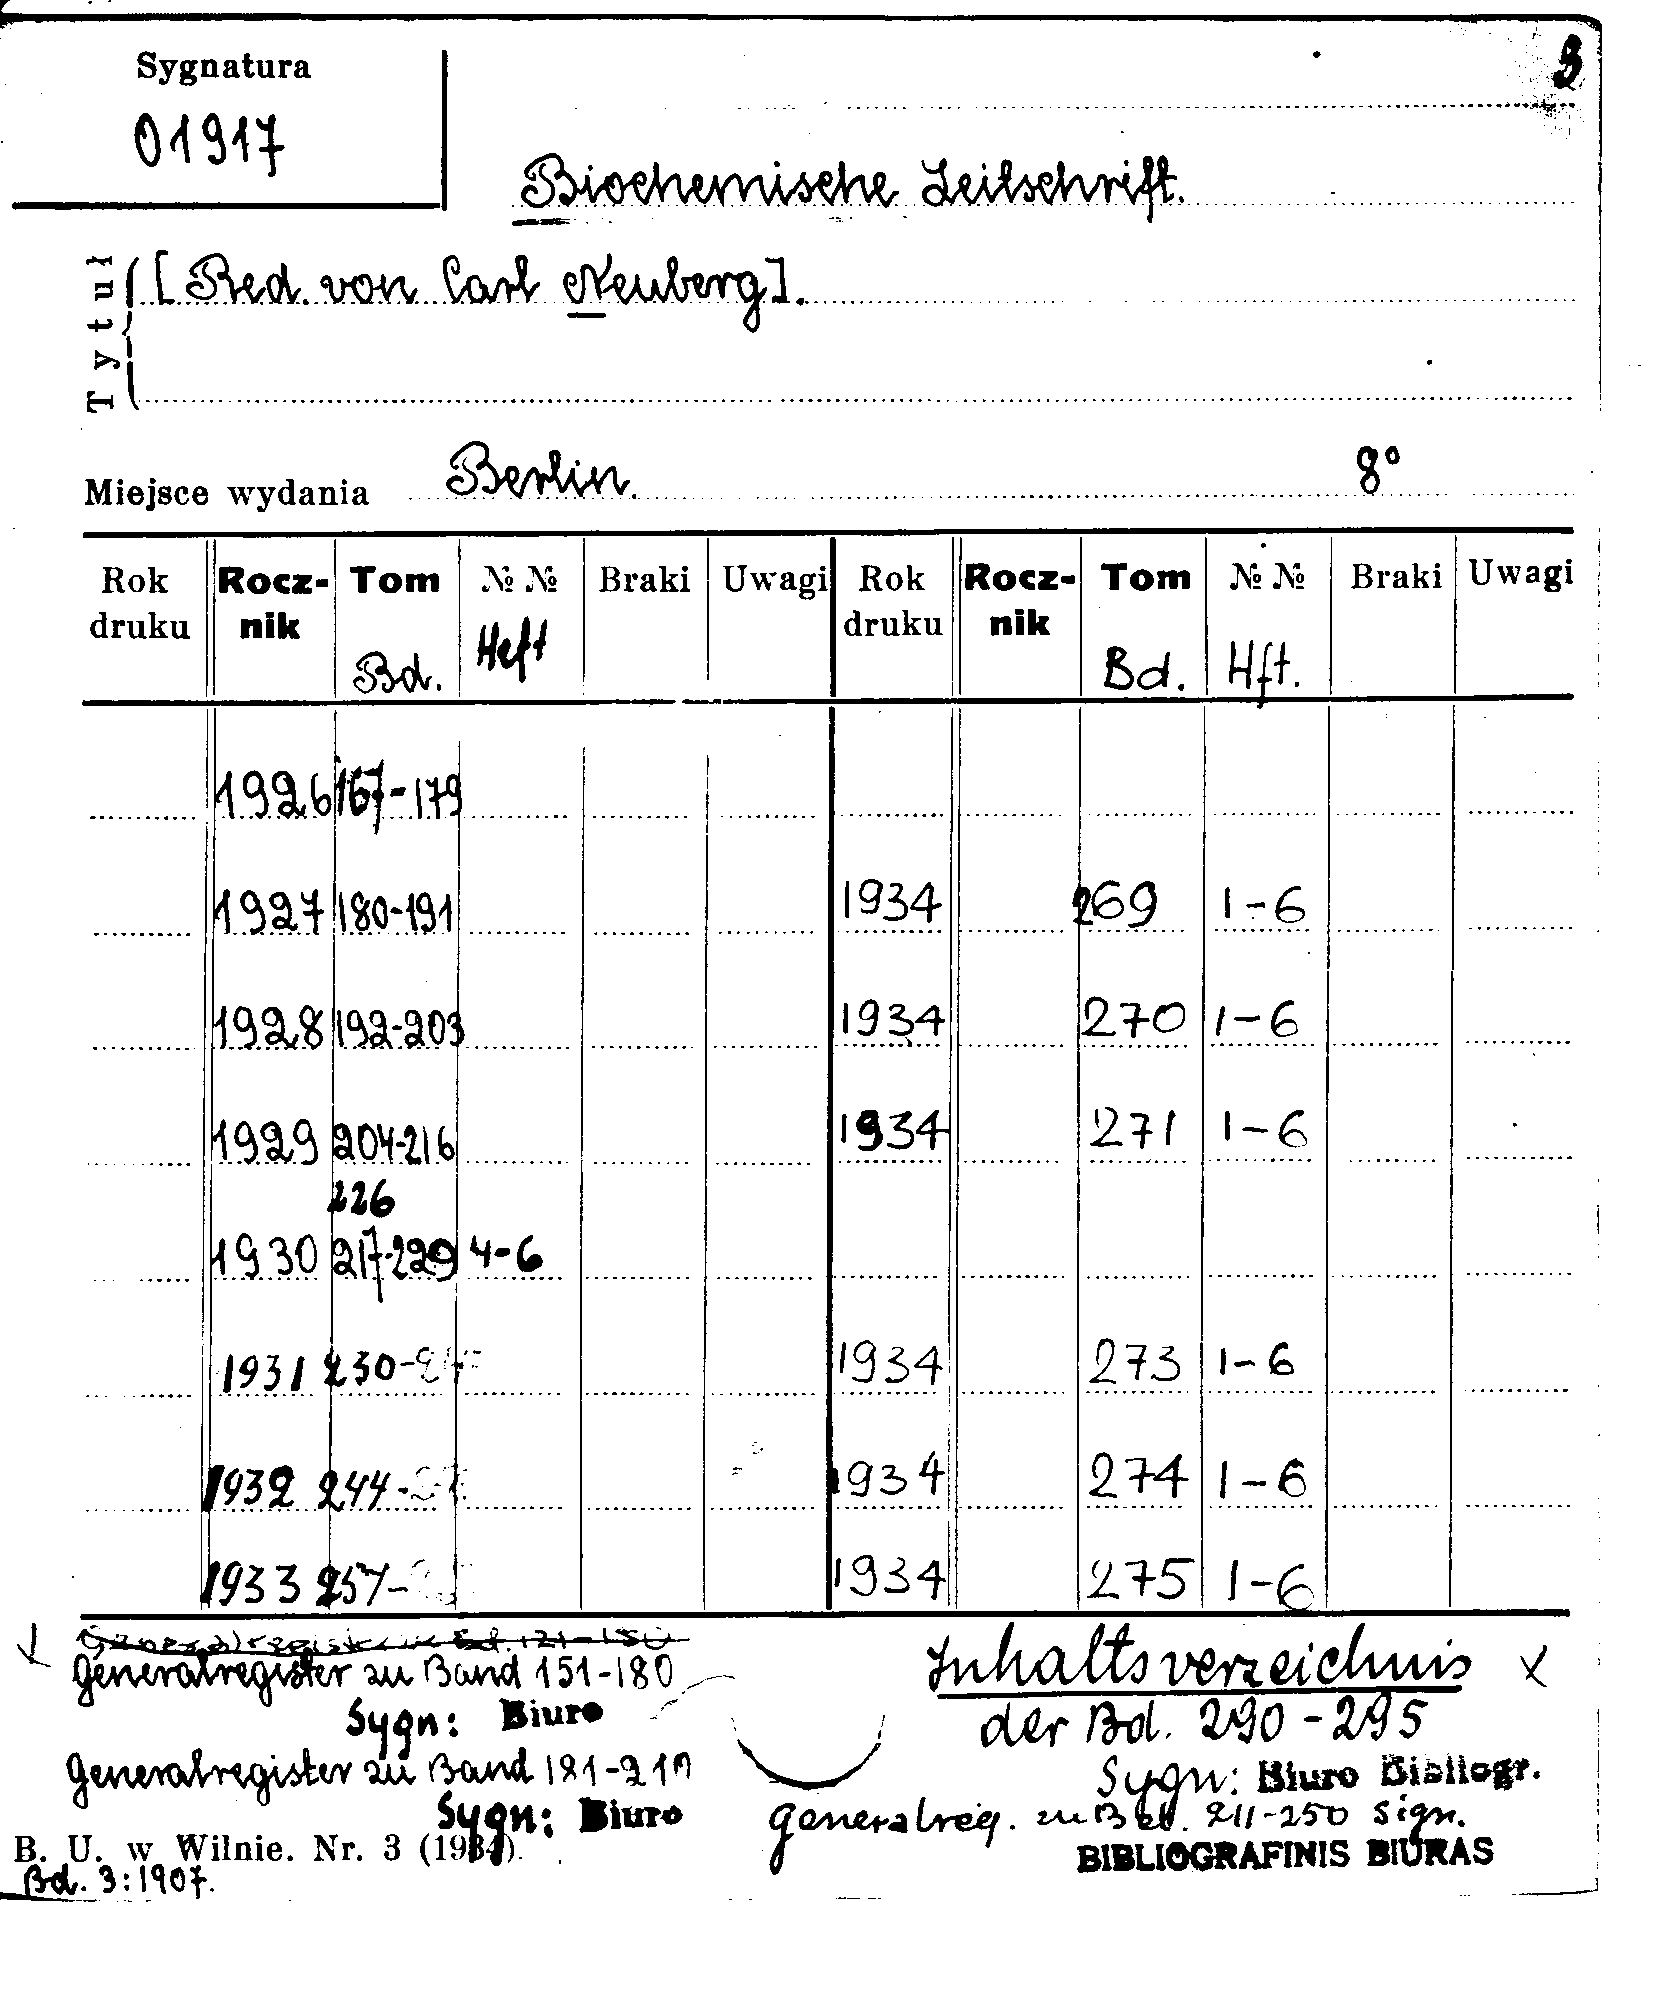 3
Sygnatura
01917
Biochemische Zeitschrift.
Tytuł
[Red. von Carl Neuberg].
Miejsce wydania Berlin. 8°
Rok druku Rocz-nik Tom Bd. № № Heft Braki Uwagi Rok druku Rocz-nik Tom Bd. № № Hft. Braki Uwagi
1926 167-179
1927 180-191 1934 269 1-6
1928 192-203 1934 270 1-6
1929 204-216 1934 271 1-6
226
1930 217-229 4-6
1931 230- 1934 273 1-6
1932 244- 1934 274 1-6
1933 257- 1934 275 1-6
Generalregister zu Bd. 121-150
Generalregister zu Band 151-180
Sygn: Biuro
Generalregister zu Band 181-210
Sygn: Biuro
Inhaltsverzeichnis X
der Bd. 290-295
Sygn: Biuro Bibliogr.
Generalreg. zu Bd. 211-250 Sign.
BIBLIOGRAFINIS BIURAS
B. U. w Wilnie. Nr. 3 (1934).
Bd. 3:1907.